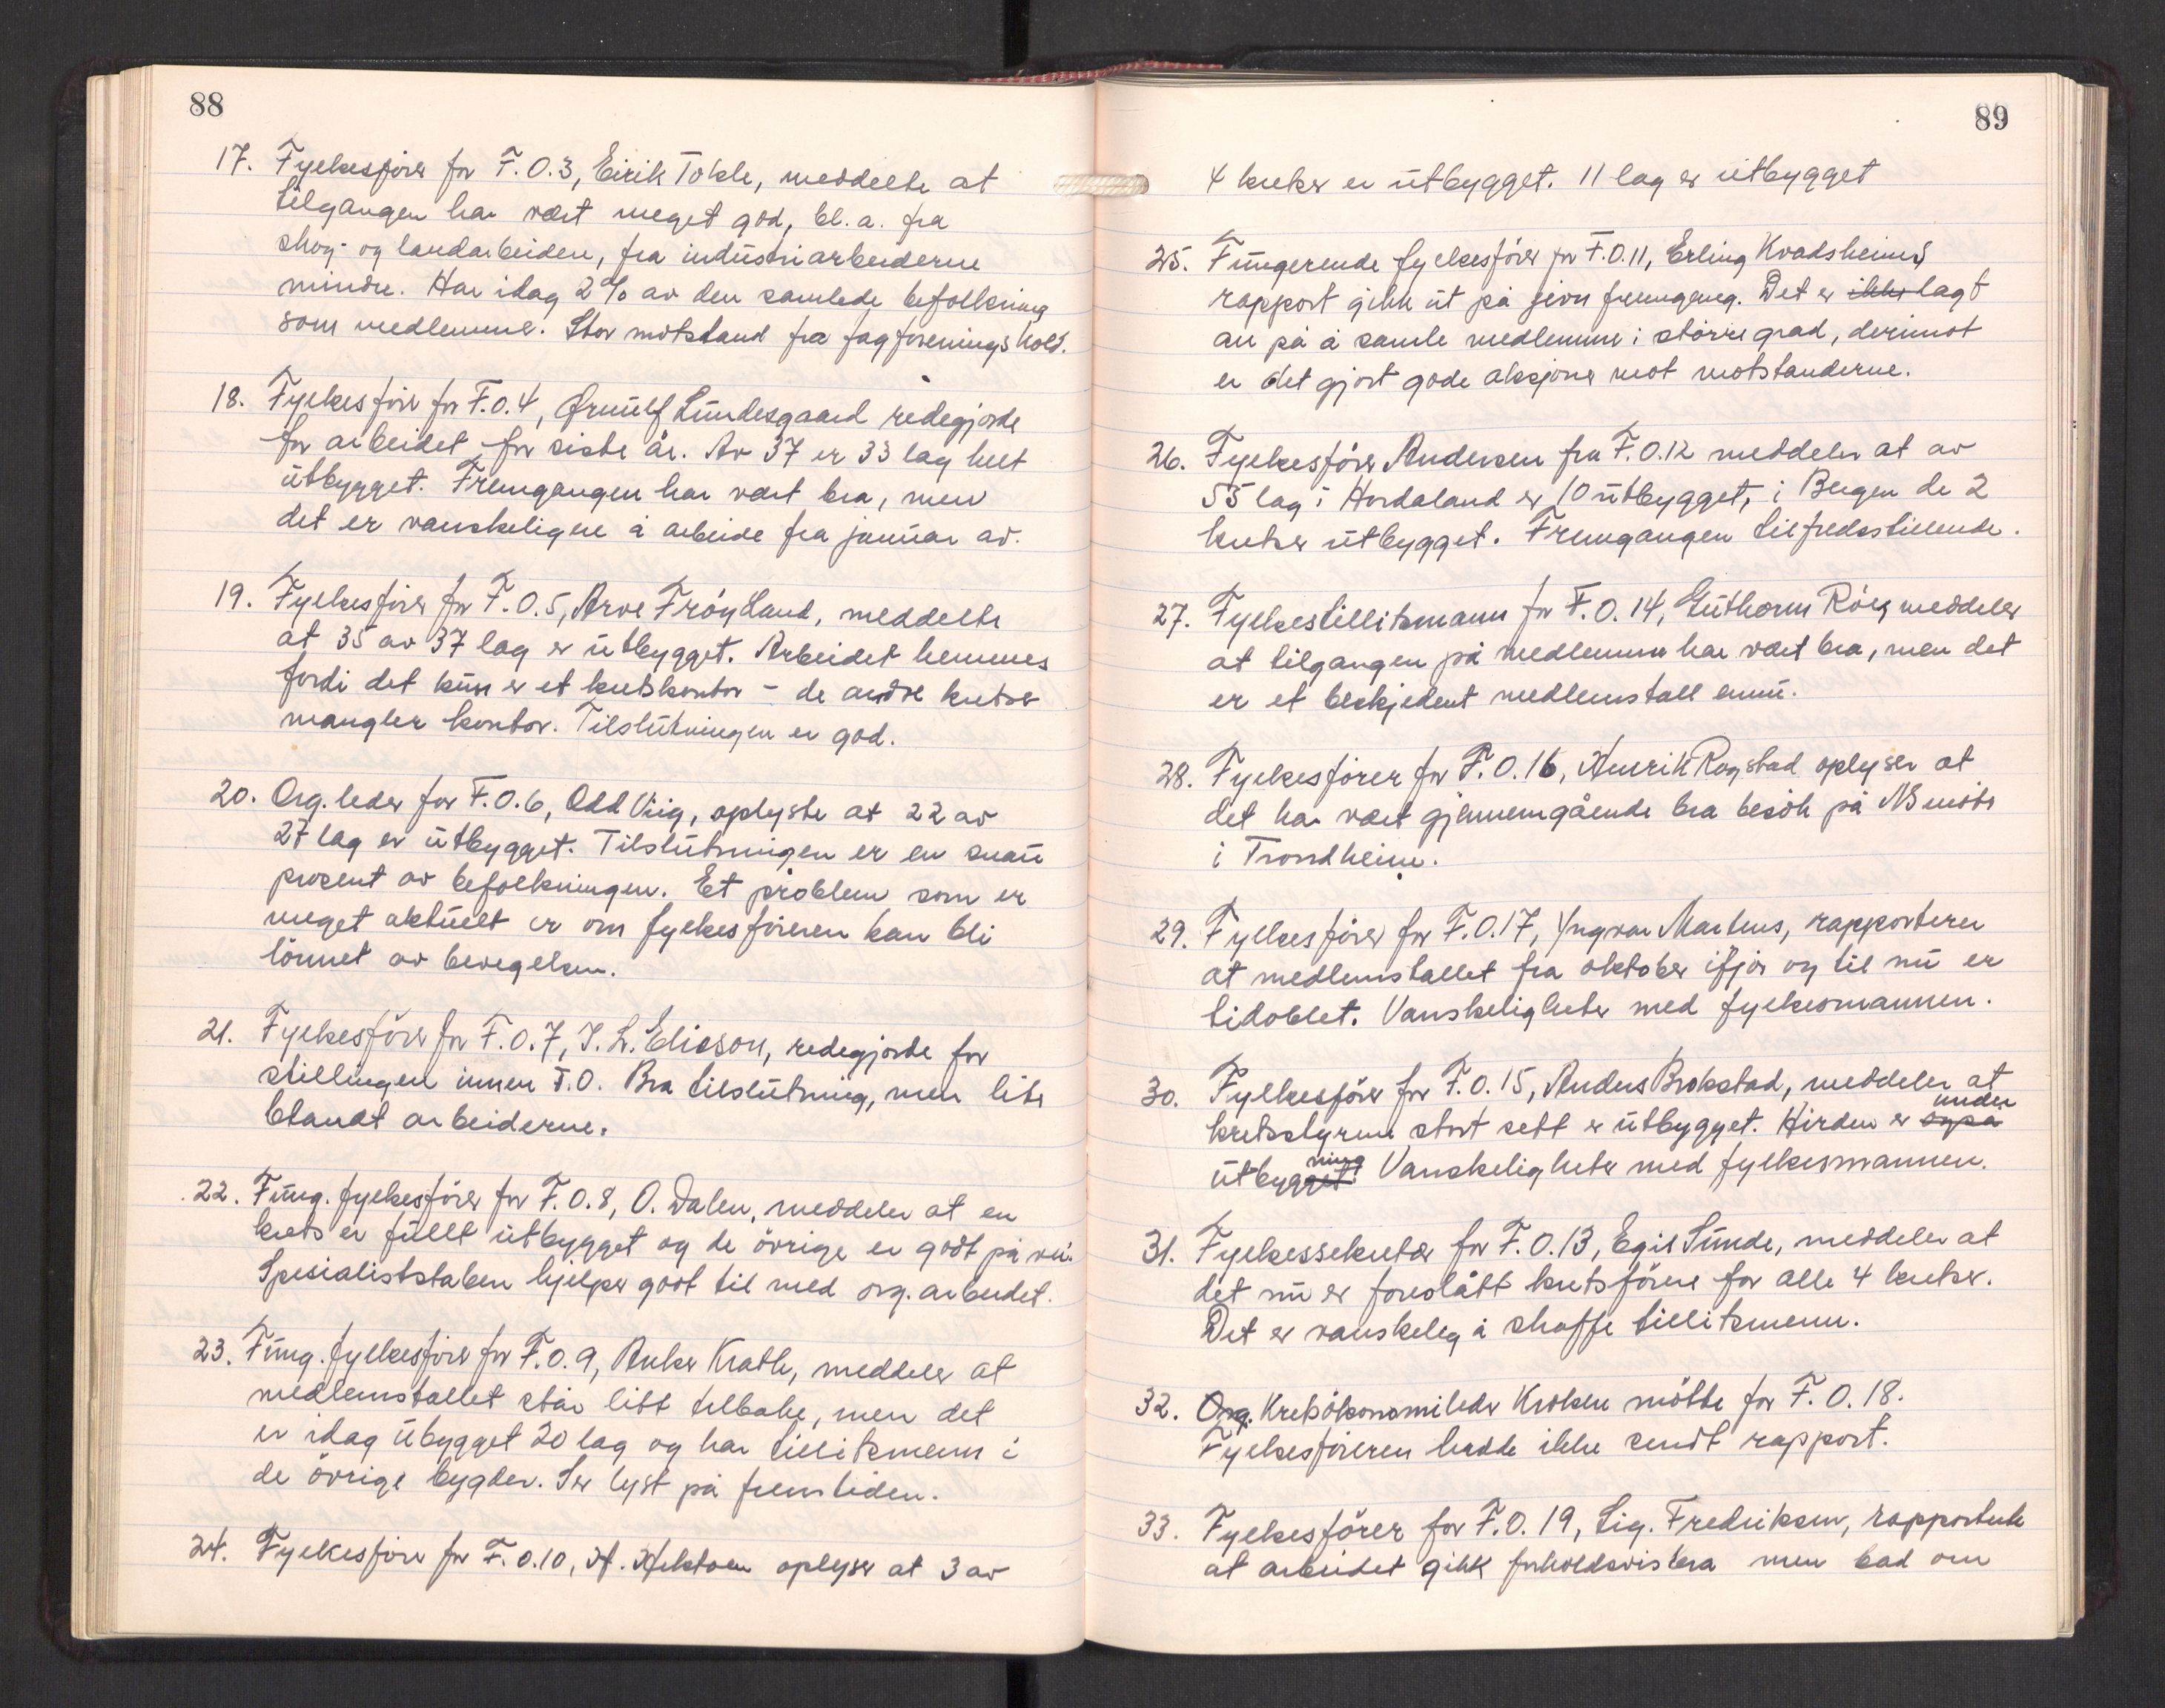 88
17. Fylkesfører for F.O.3, Eirik Tokle, meddelte at
tilgangen har vært meget god, bl.a. fra
skog- og landarbeidere, fra industriarbeiderne
mindre. Har idag 2% av den samlede befolkning
som medlemmer. Stor motstand fra fagforeningshold.
18. Fylkesfører for F.O.4, Ørnulf Lundesgaard redegjorde
for arbeidet for siste år. Av 37 er 33 lag helt
utbygget. Fremgangen har vært bra, men
det er vanskeligere å arbeide fra januar av.
19. Fylkesfører for F.O.5, Arve Frøyland, meddelte
at 35 av 37 lag er utbygget. Arbeidet hemmes
fordi det kun er et kretskontor - de andre kretser
mangler kontor. Tilslutningen er god.
20. Org.leder for F.O.6, Odd Viig, oplyste at 22 av
27 lag er utbygget. Tilslutningen er en snau
prosent av befolkningen. Et problem som er
meget aktuelt er om fylkesføreren kan bli
lønnet av bevegelsen.
21. Fylkesfører for F.O.7, I.L. Elieson, redegjorde for
stillingen innen F.O. Bra tilslutning, men lite
blandt arbeiderne.
22. Fung. fylkesfører for F.O.8, O. Dalen, meddeler at en
krets er fullt utbygget og de øvrige er godt på vei.
Spesialiststaben hjelper godt til med org.arbeidet.
23. Fung. fylkesfører for F.O.9, Anker Kratle, meddeler at
medlemstallet står litt tilbake, men det
er idag ubygget 20 lag og har tillitsmenn i
de øvrige bygder. Ser lyst på fremtiden.
24. Fylkesfører for F.O.10, H. Hektoen oplyser at 3 av
89
4 kretser er utbygget. 11 lag er utbygget
25. Fungerende fylkesfører for F.O.11, Erling Kvadsheims
rapport gikk ut på jevn fremgang. Det er ikke lagt
an på å samle medlemmer i større grad, derimot
er det gjort gode aksjoner mot motstanderne.
26. Fylkesfører Andersen fra F.O.12 meddeler at av
55 lag i Hordaland er 10 utbygget, i Bergen de 2
kretser utbygget. Fremgangen tilfredsstillende.
27. Fylkestillitsmann for F.O.14, Guthorm Røer meddeler
at tilgangen på medlemmer har vært bra, men det
er et beskjedent medlemstall ennu.
28. Fylkesfører for F.O.16, Henrik Rogstad oplyser at
det har vært gjennemgående bra besøk på NS møte
i Trondheim.
29. Fylkesfører for F.O.17, Yngvar Martens, rapporterer
at medlemstallet fra oktober ifjor og til nu er
tidoblet. Vanskeligheter med fylkesmannen.
30. Fylkesfører for F.O.15, Anders Brokstad, meddeler at
kretsstyrene stort sett er utbygget. Hirden er også under
utbygget ning. Vanskeligheter med fylkesmannen.
31. Fylkessekretær for F.O.13, Egil Sunde, meddeler at
det nu er foreslått kretsførere for alle 4 kretser.
Det er vanskelig å skaffe tillitsmenn.
32. Org. Kretsøkonomileder Kroken møtte for F.O.18.
Fylkesføreren hadde ikke sendt rapport.
33. Fylkesfører for F.O.19, Sig. Fredriksen, rapporterte
at arbeidet gikk forholdsvis bra men bad om